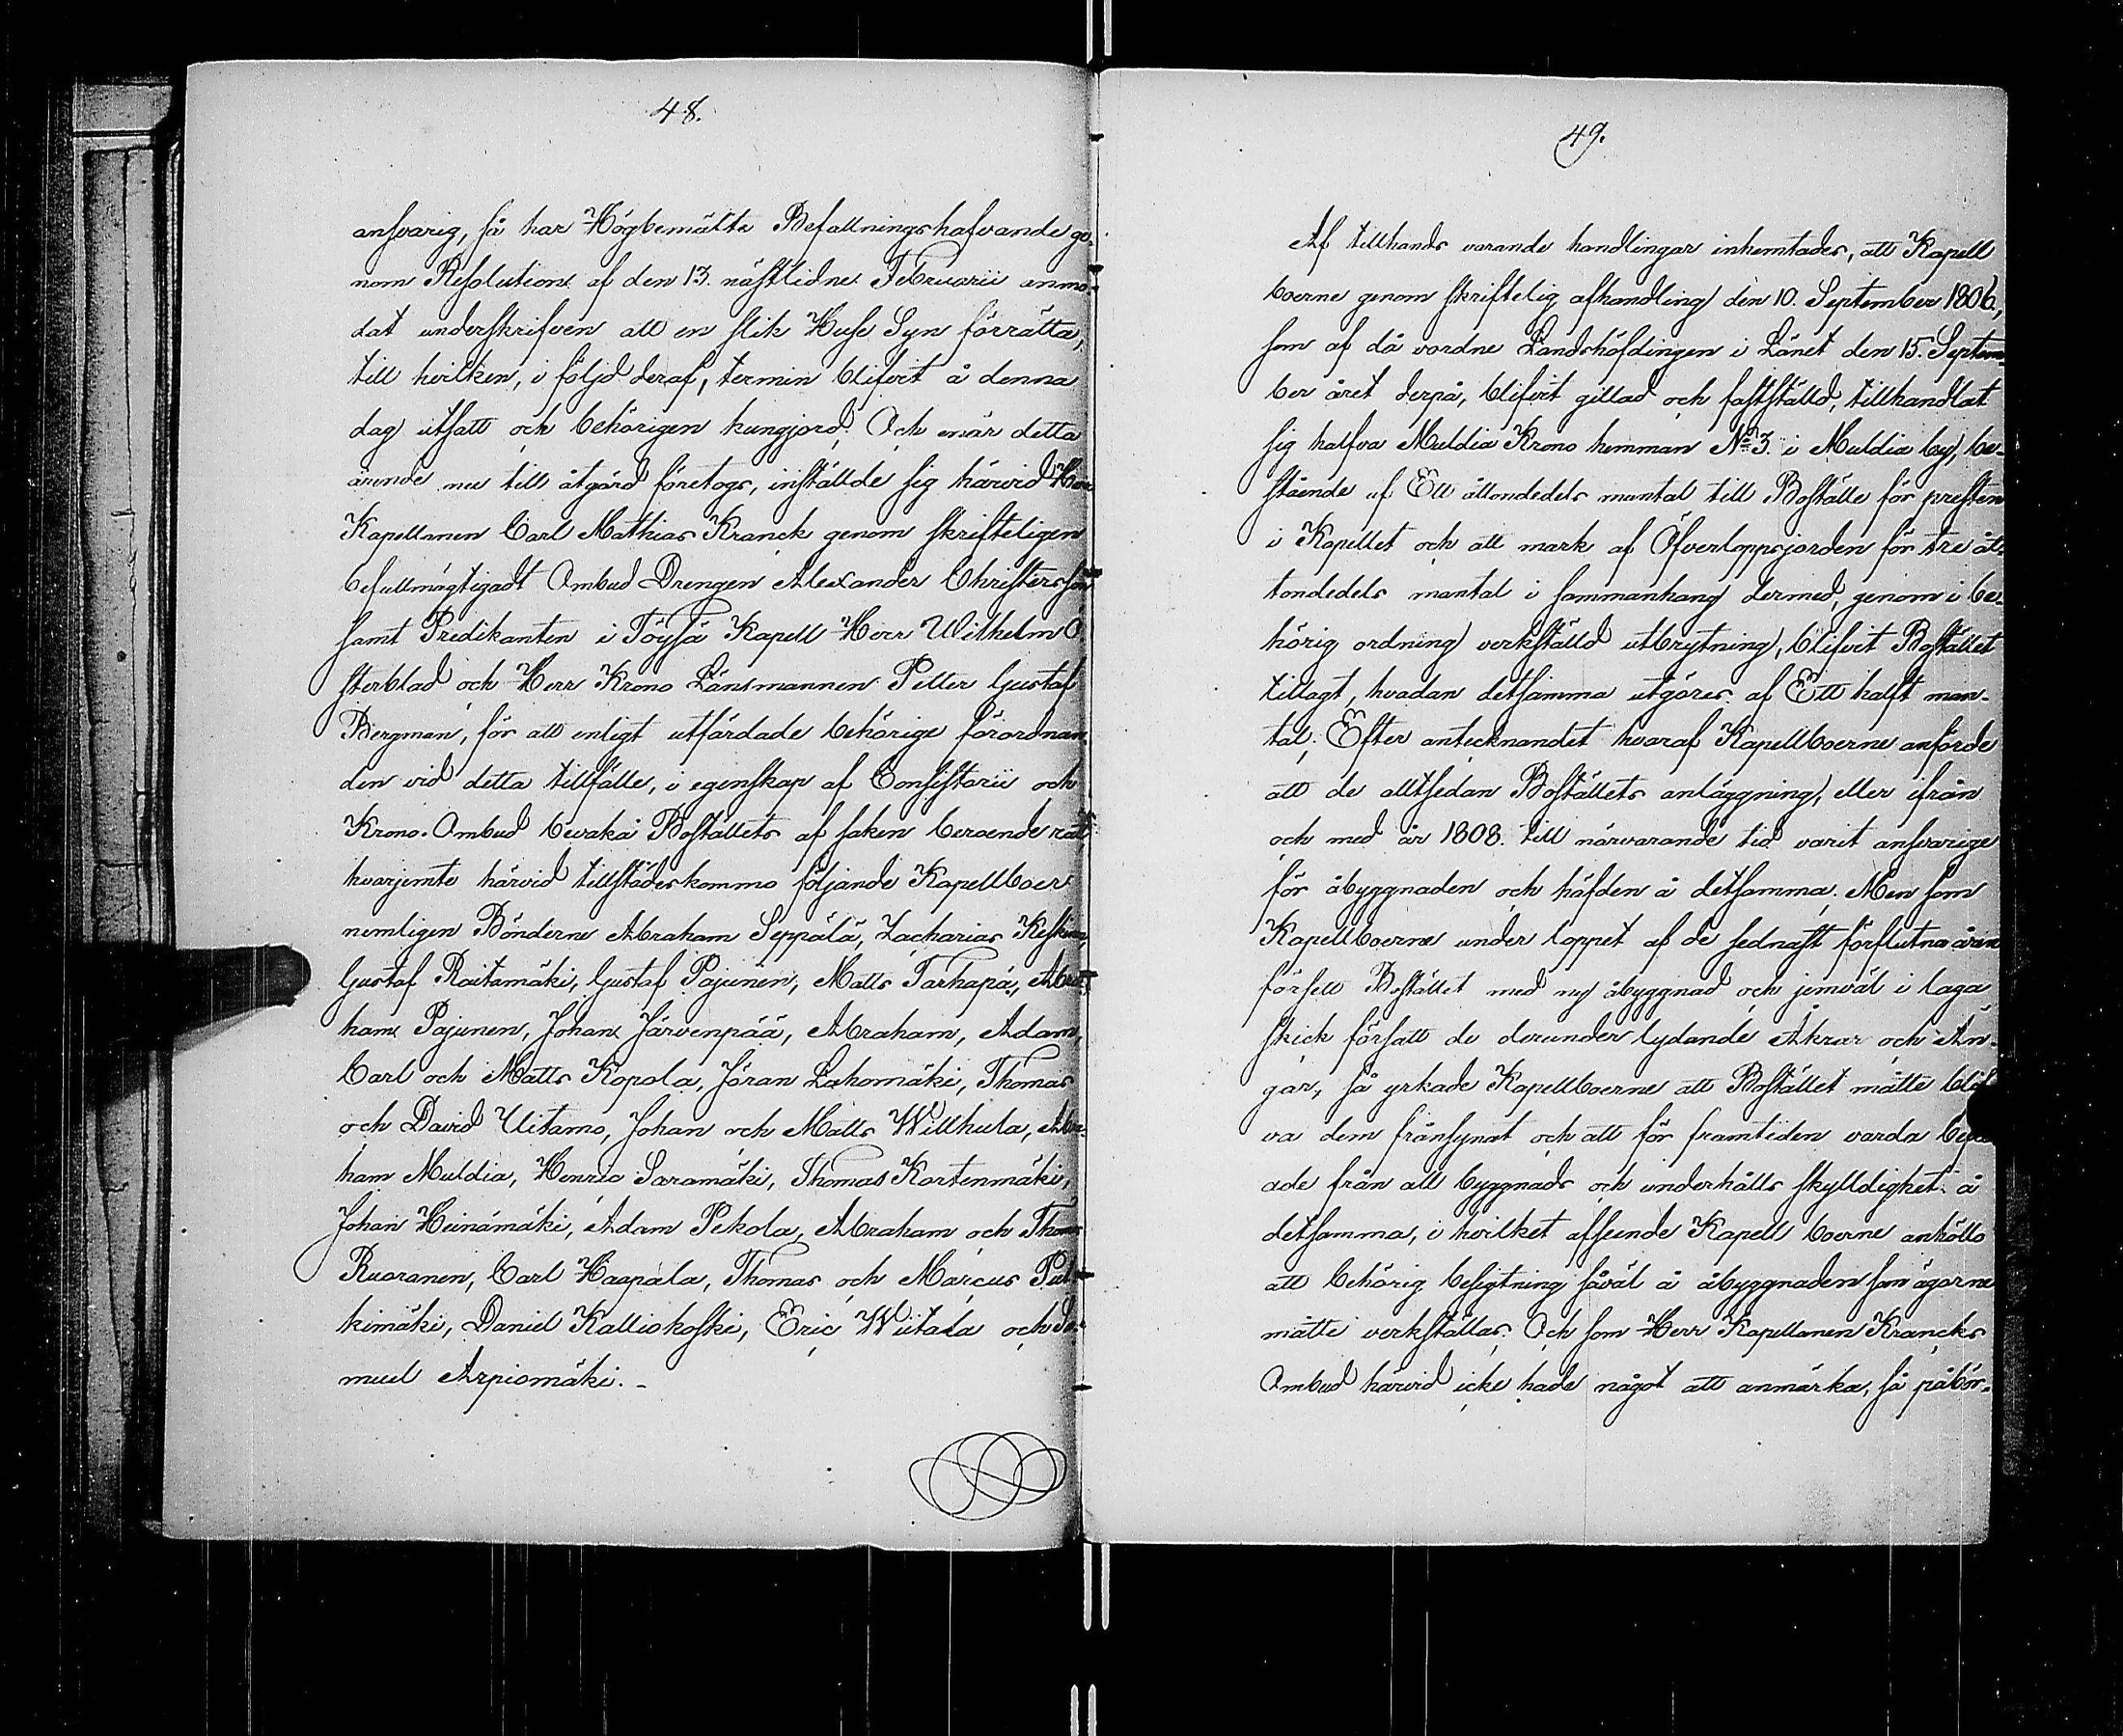 48.
ansvarig, så har Högbemälte Befallningshafvande ge-
nom Resolution af den 13. nästlidne Februarii anmo-
dat underskrifven att en slik Huse Syn förrätta,
till hvilken, i följd deraf, termin blifvit å denna
dag utsatt och behörigen kungjord. Och enär detta
ärende nu till åtgärd företogs, inställde sig härvid Herr
Kapellanen Carl Mathias Kranck genom skrifteligen
befullmägtigadt Ombud Drengen Alexander Christersson
samt Predikanten i Töysä Kapell Herr Wilhelm Ö-
sterblad och Herr Krono Länsmannen Petter Gustaf
Bergman, för att enligt utfärdade behörige förordnan-
den vid detta tillfälle, i egenskap af Consistorii och
Krono-Ombud bevaka Boställets af saken beroende rätt
hvarjemte härvid tillstädeskommo följande Kapellboer
nemligen Bönderne Abraham Seppälä, Zacharias
Gustaf Raitamäki, Gustaf Pajunen, Matts Tarhapä, Abra-
ham Pajunen, Johan Järvenpää, Abraham, Adam,
Carl och Matts Kopola, Jöran Lahomäki, Thomas
och David Uitamo, Johan och Matts Willhula, Abra-
ham Muldia, Henric Saramäki, Thomas Kortenmäki,
Johan Heinämäki, Adam Pekola, Abraham och Thomas
Ruoranen, Carl Haapala, Thomas och Marcus Pul-
kimäki, Daniel Kalliokoski, Eric Wiitala och Sa-
muel Arpiomäki.-
49.
Af tillhands varande handlingar inhemtades, att Kapell
boerne genom skriftelig afhandling den 10. September 1806.,
som af då vordne Landshöfdingen i Länet den 15. Septem-
ber året derpå, blifvit gillad och fastställd, tillhandlat
sig halfva Muldia Krono hemman No 3. i Muldia by, be-
stående af Ett åttondedels mantal till Boställe för presten
i Kapellet och att mark af Öfverloppsjorden för tre åt-
tondedels mantal i sammanhang dermed, genom i be-
hörig ordning verkställd utbrytning, blifvit Bostället
tillagt, hvadan detsamma utgöres af Ett halft man-
tal; Efter antecknandet hvaraf Kapellboerne anförde
att de alltsedan Boställets anläggning, eller ifrån
och med år 1808. till närvarande tid varit ansvarige
för åbyggnaden och häfden å detsamma. Men som
Kapellboerne under loppet af de sednast förflutna åren
försett Bostället med ny åbyggnad och jemväl i laga
skick försatt de derunder lydande Åkrar och Än-
gar, så yrkade Kapellboerne att Bostället måtte blif-
va dem frånsynat och att för framtiden varda
ade från all byggnads och underhålls skylldighet å
detsamma, i hvilket afseende Kapell boerne anhöllo
att behörig besigtning såväl å åbyggnaden som ägorne
måtte verkställas. Och som Herr Kapellanen Krancks
Ombud härvid icke hade något att anmärka, så påbör-